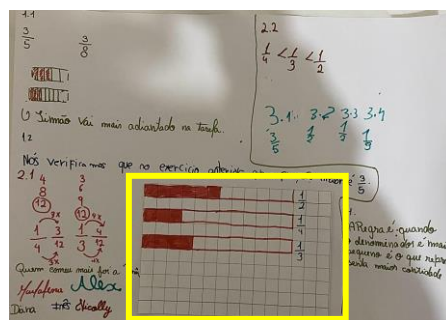 1.1
3/5
3/8
O Simão vai mais adiantado na tarefa.
1.2
Nós verificamos que no exercício anterior
é 3/5.
2.1
4
8
12
3
6
9
12
1/4
3/12
1/3
4/12
Quem comeu mais foi a
Mafalda Alex
Dara Inês Nicolly
1/2
1/4
1/3
2.2
1/4 < 1/3 < 1/2
3.1 3.2 3.3 3.4
3/5 1/2
A Regra é: quando
o denominador é mais
pequeno é o que repre
senta maior quantidade